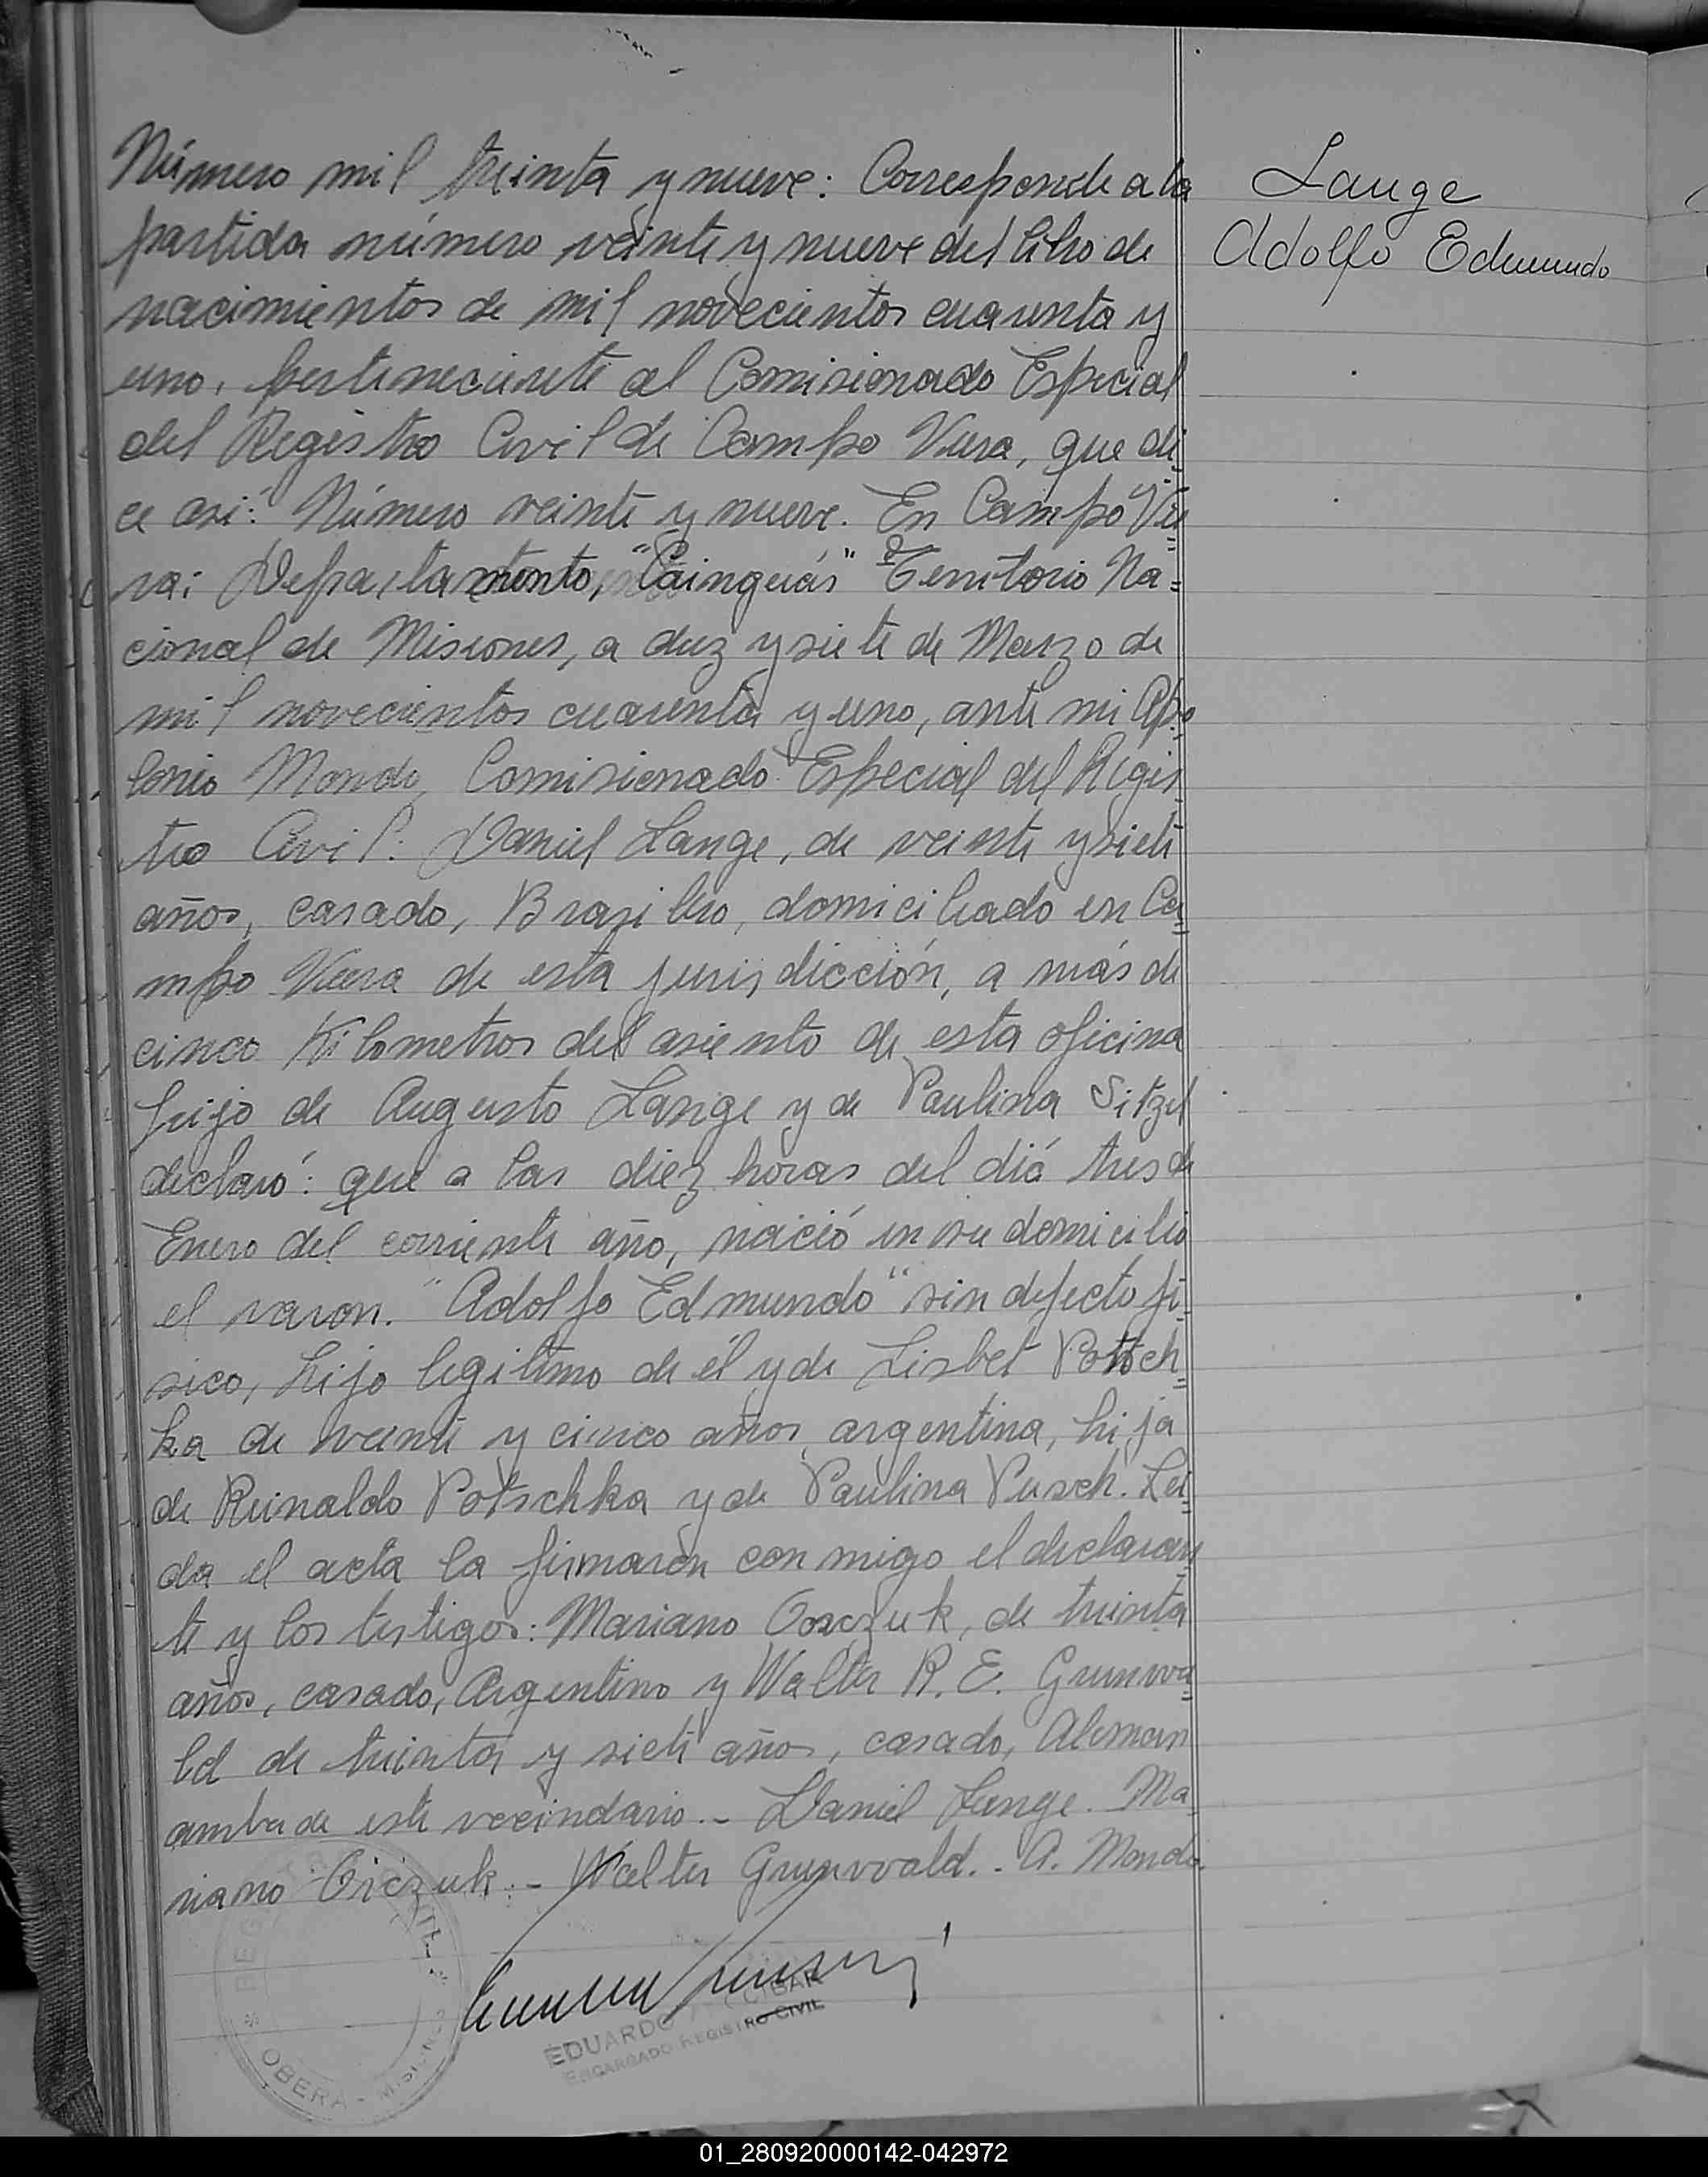 Número mil treinta y nueve: Corresponde a la
partida número veinte y nueve del libro de
nacimientos de mil novecientos cuarenta y
uno, perteneciente al Comisionado Especial
del Registro Civil de Campo Viera, que di=
ce asi: "Número veinte y nueve. En Campo Vie=
ra: Departamento, "Cainguás" Territorio Na=
cional de Misiones, a diez y siete de Marzo de
mil novecientos cuarenta y uno, ante mi Apo=
lonio Mondo, Comisionado Especial del Regis
tro Civil: Daniel Lange, de veinte y siete
años, casado, Brasilero, domiciliado en Ca=
mpo Viera de esta jurisdicción, a más de
cinco Kilometros del asiento de esta oficina
hijo de Augusto Lange y de Paulina Sitzel
declaró: que a las diez horas del diá tres de
Enero del corriente año, nació en su domicilio
el varon. "Adolfo Edmundo" sin defecto fi=
sico, hijo legitimo de él y de Lisbet Potsch=
ka de veinte y cinco años, argentina, hija
de Reinaldo Potschka y de Paulina Pusch. Lei=
da el acta la firmaron con migo el declaran
te y los testigos: Mariano de treinta
años, casado, Argentino y Walter R. E. Grunwa=
ld de treinta y siete años, casado, Aleman
ambos de este vecindario.- Daniel Lange. Ma=
riano - Walter Grunwald.. A. Mondo.
Lange
Adolfo Edmundo
REGISTRO CIVIL
OBERA - MISIONES
EDUARDO
ENCARGADO REGISTRO CIVIL
01_280920000142-042972